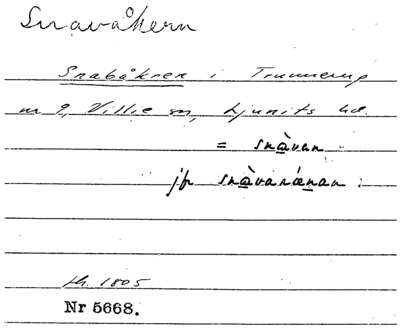 Snavåkern
Snabåkren i Trunnerup
nr 9, Villie sn, Ljunits hd.
= snàvan
jfr snàvarǽnan.
sk. 1805
Nr 5668.